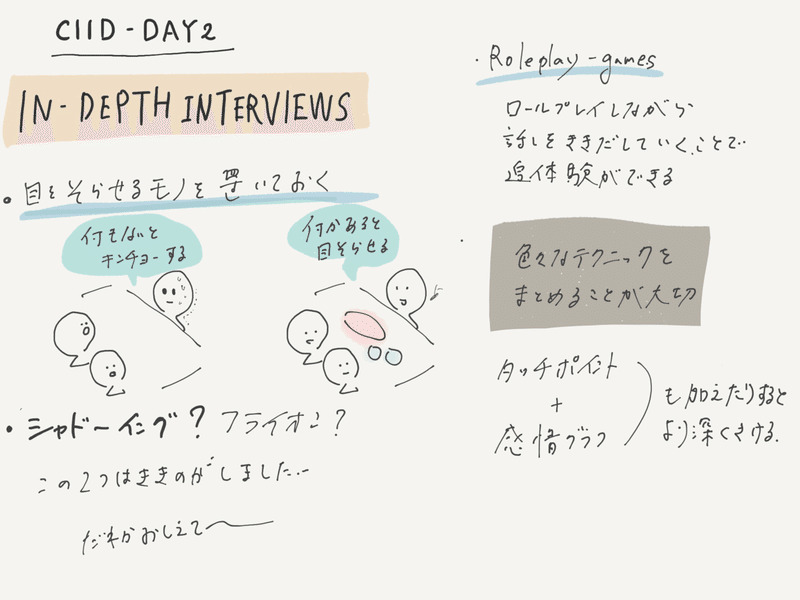 CIID - DAY2
IN-DEPTH INTERVIEWS
・目をそらせるモノを置いておく
何もないと
キンチョーする
何かあると
目そらせる
・シャドーイング? フライオン?
この2つはききのがしました...
だれかおしえて〜
・Roleplay-games
ロールプレイしながら
話しをききだしていくことで
追体験ができる
・色々なテクニックを
まとめることが大切
タッチポイント
+
感情グラフ
も加えたりすると
より深くきける.